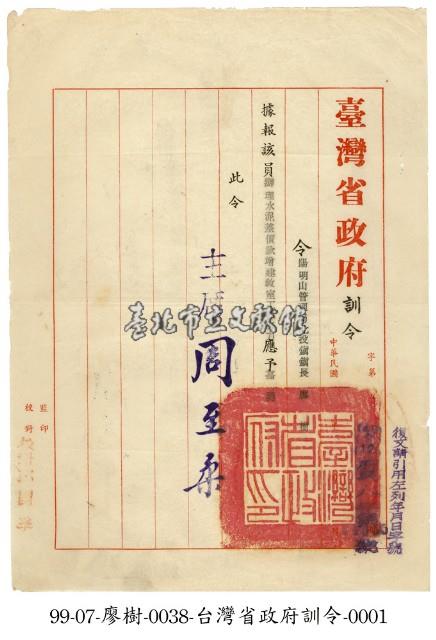 臺灣省政府訓令
字第
中華民國
令陽明山管
鎮鎮長廖
據報該員辦理水泥差價款增建教室
應予嘉
此令
主席周至柔
監印
校對
臺灣省政府印
復文請引用左列年月日字號
臺北市立文獻館
99-07-廖樹-0038-台灣省政府訓令-0001